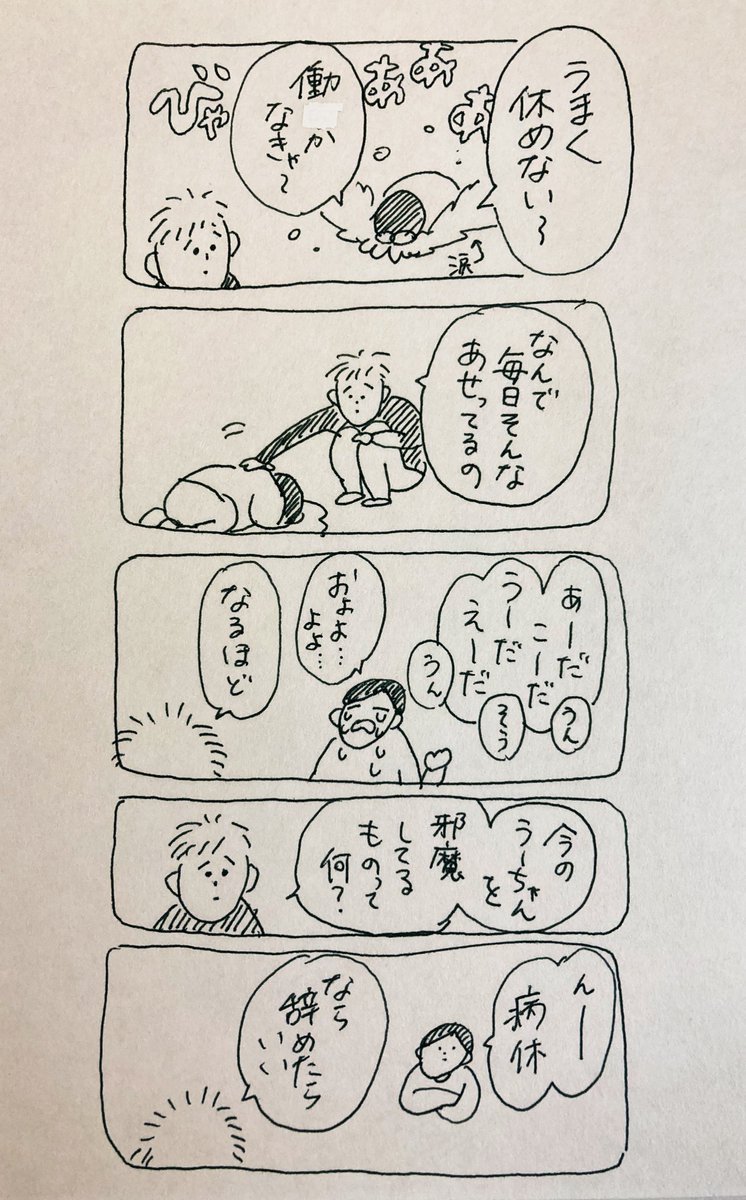 うまく
休めない〜
働かなきゃ〜
びゃ
あ
あ
あ
涙
なんで
毎日そんな
あせってるの
あーだ
こーだ
うーだ
えーだ
うん
そう
うん
およよ…
よよ…
なるほど
今の
うーちゃん
を
邪魔
してる
ものって
何?
んー
病休
なら
辞めたら
いい